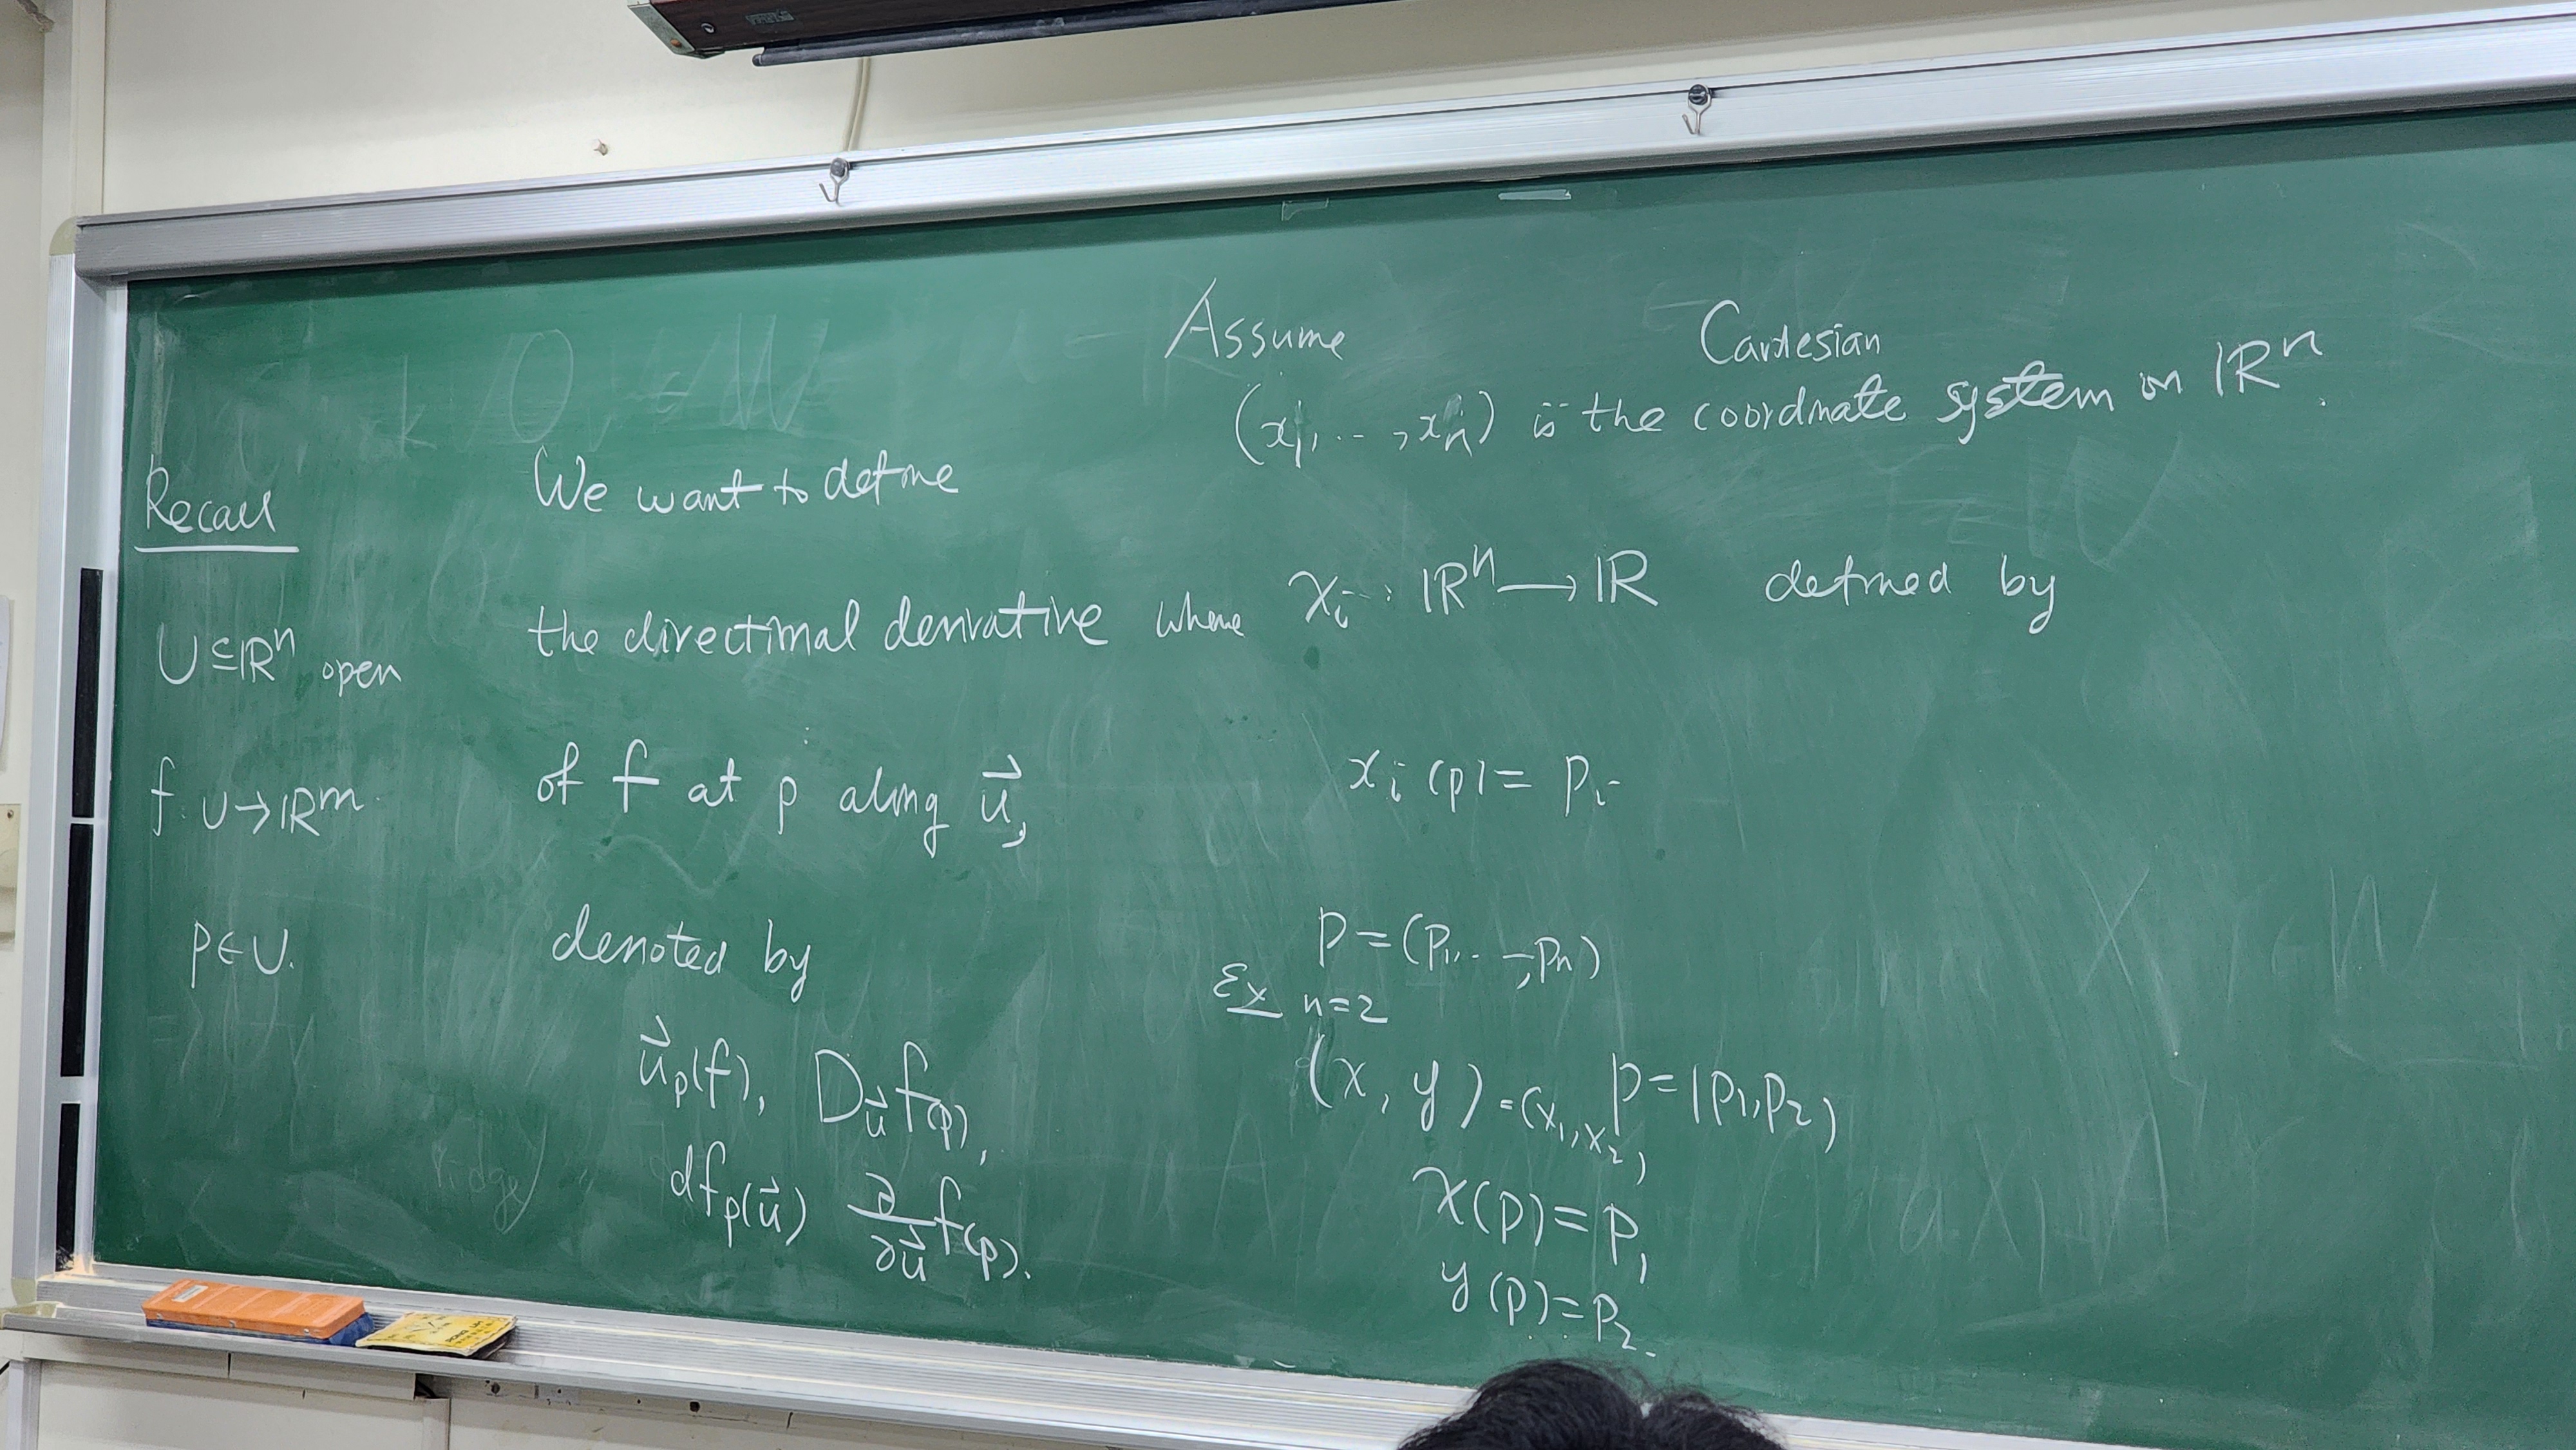 Recall
U ⊆ ℝⁿ open
f: U → ℝᵐ.
p ∈ U.
We want to define
the directional derivative
of f at p along u⃗,
denoted by
u⃗ₚ(f), D_u⃗ f(p),
dfₚ(u⃗) ∂/∂u⃗ f(p).
Assume
Cartesian
(x₁, ..., xₙ) is the coordinate system on ℝⁿ.
where xᵢ: ℝⁿ → ℝ defined by
xᵢ(p) = pᵢ
p = (p₁, ..., pₙ)
Ex n=2
(x, y) = (x₁, x₂) p = (p₁, p₂)
x(p) = p₁
y(p) = p₂.